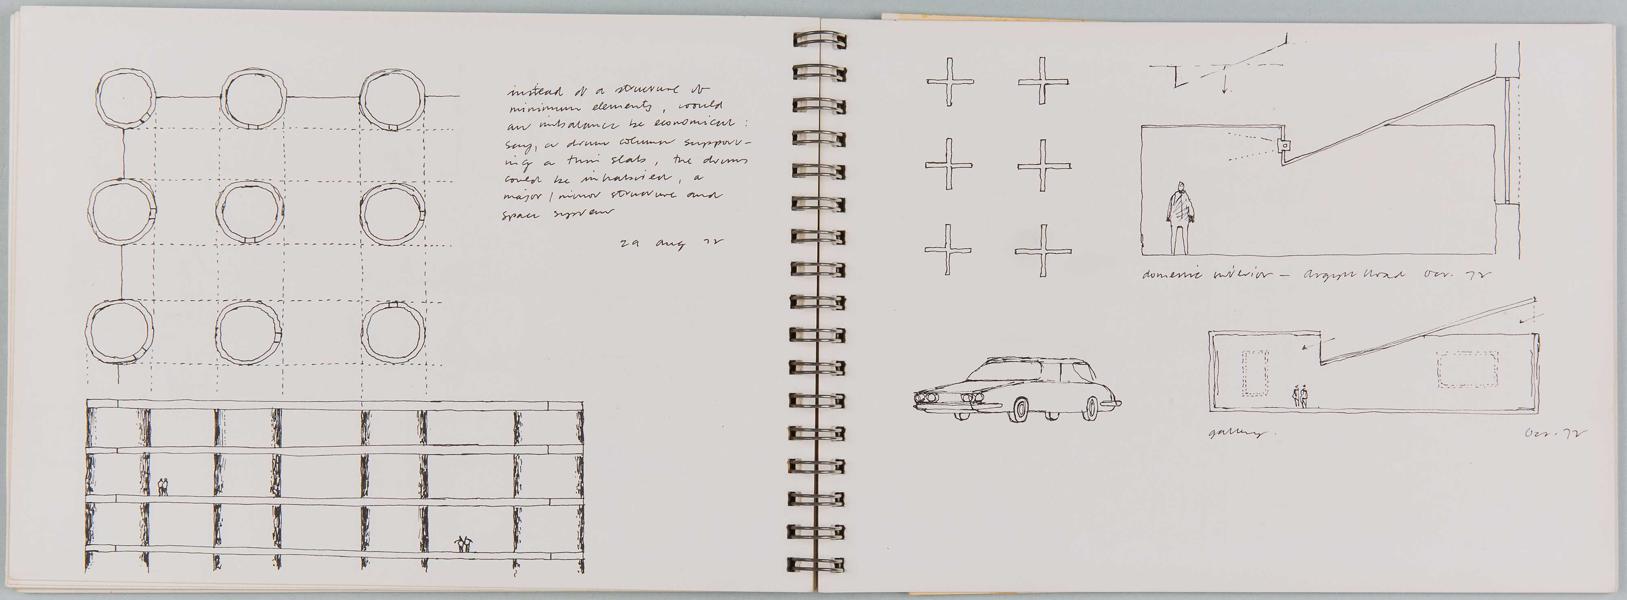 instead of a structure of
minimum elements, would
an imbalance be economical:
say, a drum column support-
ing a thin slab, the drums
could be inhabited, a
major/minor structure and
space system
29 aug 72
domestic interior – argyll road Oct. 72
gallery.
Oct. 72